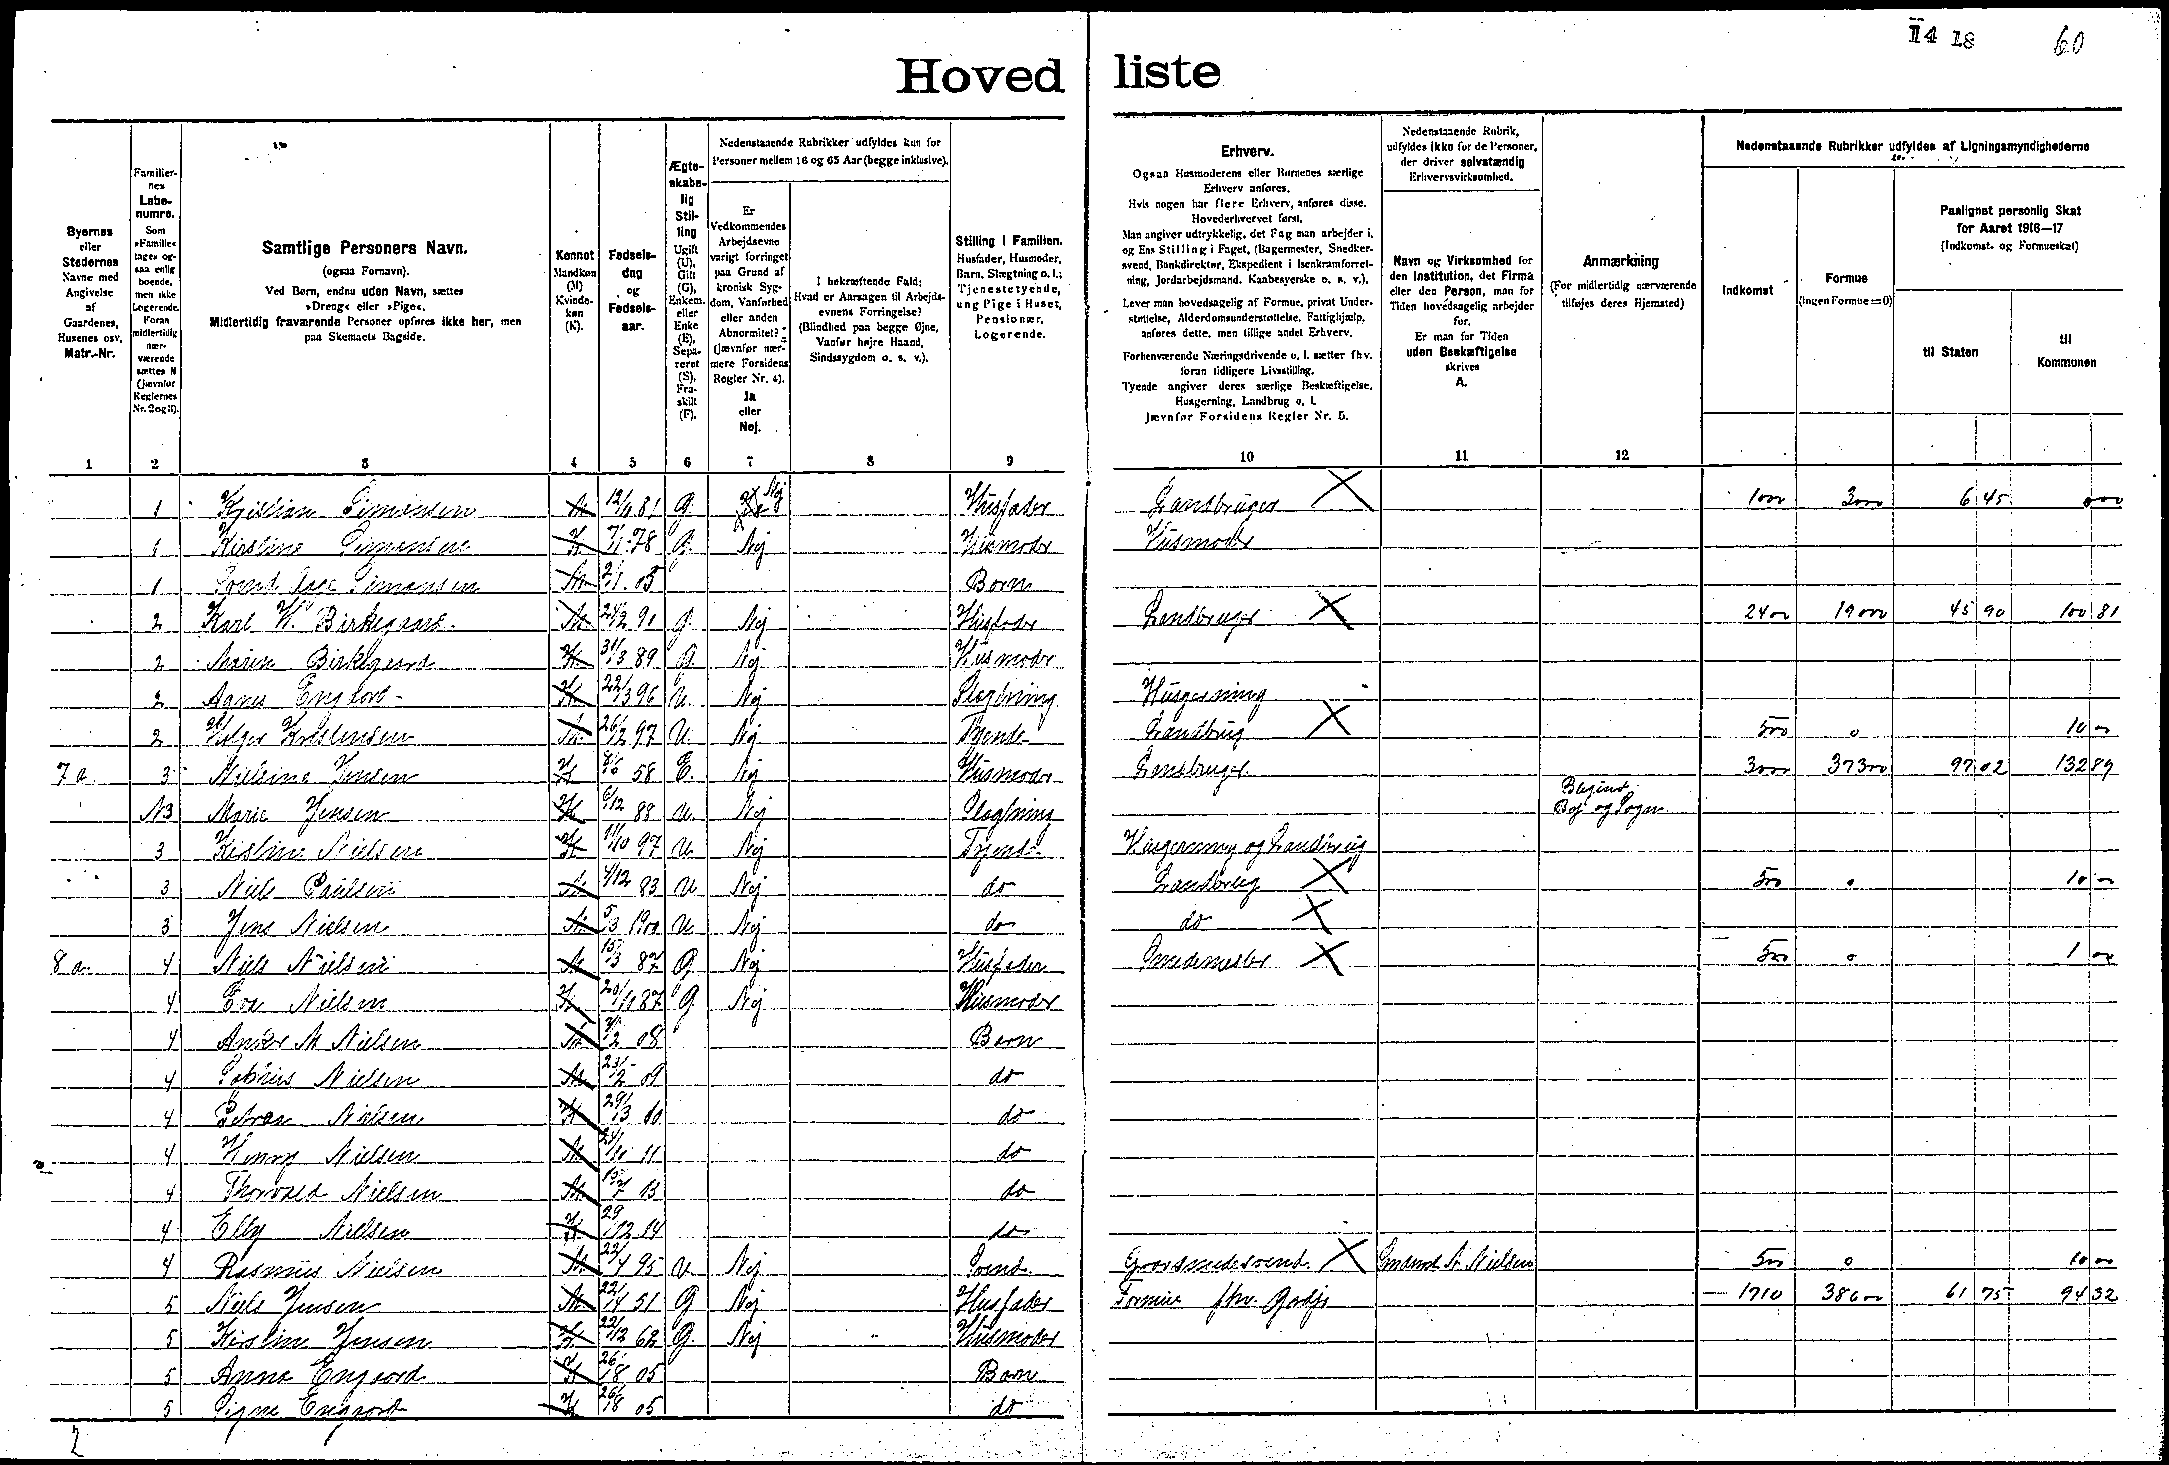 II4 18 60
Hoved liste
Byernes eller Stedernes Navne med Angivelse af Gaardenes, Husenes osv. Matr.-Nr.
Familiernes Løbenumre. Som »Familie« tages ogsaa enlig boende, men ikke Logerende. Foran midlertidig nærværende sættes N (Jævnfør Reglernes Nr. 2 og 11).
Samtlige Personers Navn.
(ogsaa Fornavn).
Ved Børn, endnu uden Navn, sættes
»Dreng« eller »Pige«.
Midlertidig fraværende Personer opføres ikke her, men
paa Skemaets Bagside.
Kønnet Mandkøn (M) Kvindekøn (K).
Fødselsdag og Fødselsaar.
Ægteskabelig Stilling Ugift (U), Gift (G), Enkem. eller Enke (E), Separeret (S), Fraskilt (F).
Nedenstaaende Rubrikker udfyldes kun for
Personer mellem 16 og 65 Aar (begge inklusive).
Er Vedkommendes Arbejdsevne varigt forringet paa Grund af kronisk Sygdom, Vanførhed eller anden Abnormitet? (Jævnfør nærmere Forsidens Regler Nr. 4). Ja eller Nej.
I bekræftende Fald: Hvad er Aarsagen til Arbejdsevnens Forringelse? (Blindhed paa begge Øjne, Vanfør højre Haand, Sindssygdom o. s. v.).
Stilling i Familien. Husfader, Husmoder, Barn, Slægtning o. l.; Tjenestetyende, ung Pige i Huset, Pensionær, Logerende.
Erhverv.
Ogsaa Husmoderens eller Børnenes særlige
Erhverv anføres.
Hvis nogen har flere Erhverv, anføres disse.
Hovederhvervet først.
Man angiver udtrykkelig, det Fag man arbejder i,
og Ens Stilling i Faget, (Bagermester, Snedkersvend, Bankdirektør, Ekspedient i Isenkramforretning, Jordarbejdsmand, Kaabesyerske o. s. v.).
Lever man hovedsagelig af Formue, privat Understøttelse, Alderdomsunderstøttelse, Fattighjælp,
anføres dette, men tillige andet Erhverv.
Forhenværende Næringsdrivende o. l. sætter fhv.
foran tidligere Livsstilling.
Tyende angiver deres særlige Beskæftigelse,
Husgerning, Landbrug o. l.
Jævnfør Forsidens Regler Nr. 5.
Nedenstaaende Rubrik, udfyldes ikke for de Personer, der driver selvstændig Erhvervsvirksomhed.
Navn og Virksomhed for den Institution, det Firma eller den Person, man for Tiden hovedsagelig arbejder for.
Er man for Tiden uden Beskæftigelse skrives A.
Anmærkning
(For midlertidig nærværende tilføjes deres Hjemsted)
Nedenstaaende Rubrikker udfyldes af Ligningsmyndighederne
Indkomst
Formue (Ingen Formue = 0)
Paalignet personlig Skat for Aaret 1916—17 (Indkomst- og Formueskat)
til Staten
til Kommunen
1 2 3 4 5 6 7 8 9 10 11 12
1 Simonsen M 12/9 81 G. Nej Husfader Landbruger 1000 3000 6 45
1 Kirstine Simonsen K 7/1 78 G. Nej Husmoder Husmoder
1 Svend Aage Simonsen M 2/1 05 Barn
2 Karl W. Birkegaard M 24/2 91 G. Nej Husfader Landbruger 2400 19000 45 90 100 81
2 Maren Birkegaard K 31/3 89 G. Nej Husmoder
2 Agnes K 22/3 96 U. Nej Slægtning Husgerning
2 Holger Kristensen M 26/2 97 U. Nej Tyende Landbrug 500 0 10 00
7a 3 Nielsine Jensen K 58 E. Nej Husmoder Landbruger 3000 37300 97 02 132 89
N3 Marie Jensen K 6/12 88 U. Nej Slægtning By og Sogn
3 Kirstine Nielsen K 11/10 97 U. Nej Tyende Husgerning og Landbrug
3 Niels Poulsen M 4/12 83 U Nej do Landbrug 500 0 10 00
3 Jens Nielsen M 5/3 1900 U Nej do do
8a. 4 Niels Nielsen M 15/3 87 G Nej Husfader Smedemester 500 0 1 00
4 Eva Nielsen K 20/11 87 G. Nej Husmoder
4 Anker M Nielsen M 08 Barn
4 Nielsen M 23/2 09 do
4 Petrea Nielsen K 29/3 10 do
4 Henry Nielsen M 11 do
4 Thorvald Nielsen M 13 do
4 Elly Nielsen K 29/12 14 do
4 Rasmus Nielsen M 22/4 95 U. Nej Svend Grovsmedesvend Smedm. N. Nielsen 500 0 10 00
5 Niels Jensen M 51 G Nej Husfader Formue fhv. Gdejr 1710 38600 61 75 94 32
5 Kirstine Jensen K 22/12 62 G. Nej Husmoder
5 Anna Engaard K 26/8 05 Barn
5 Signe Engaard K 26/8 05 do
2